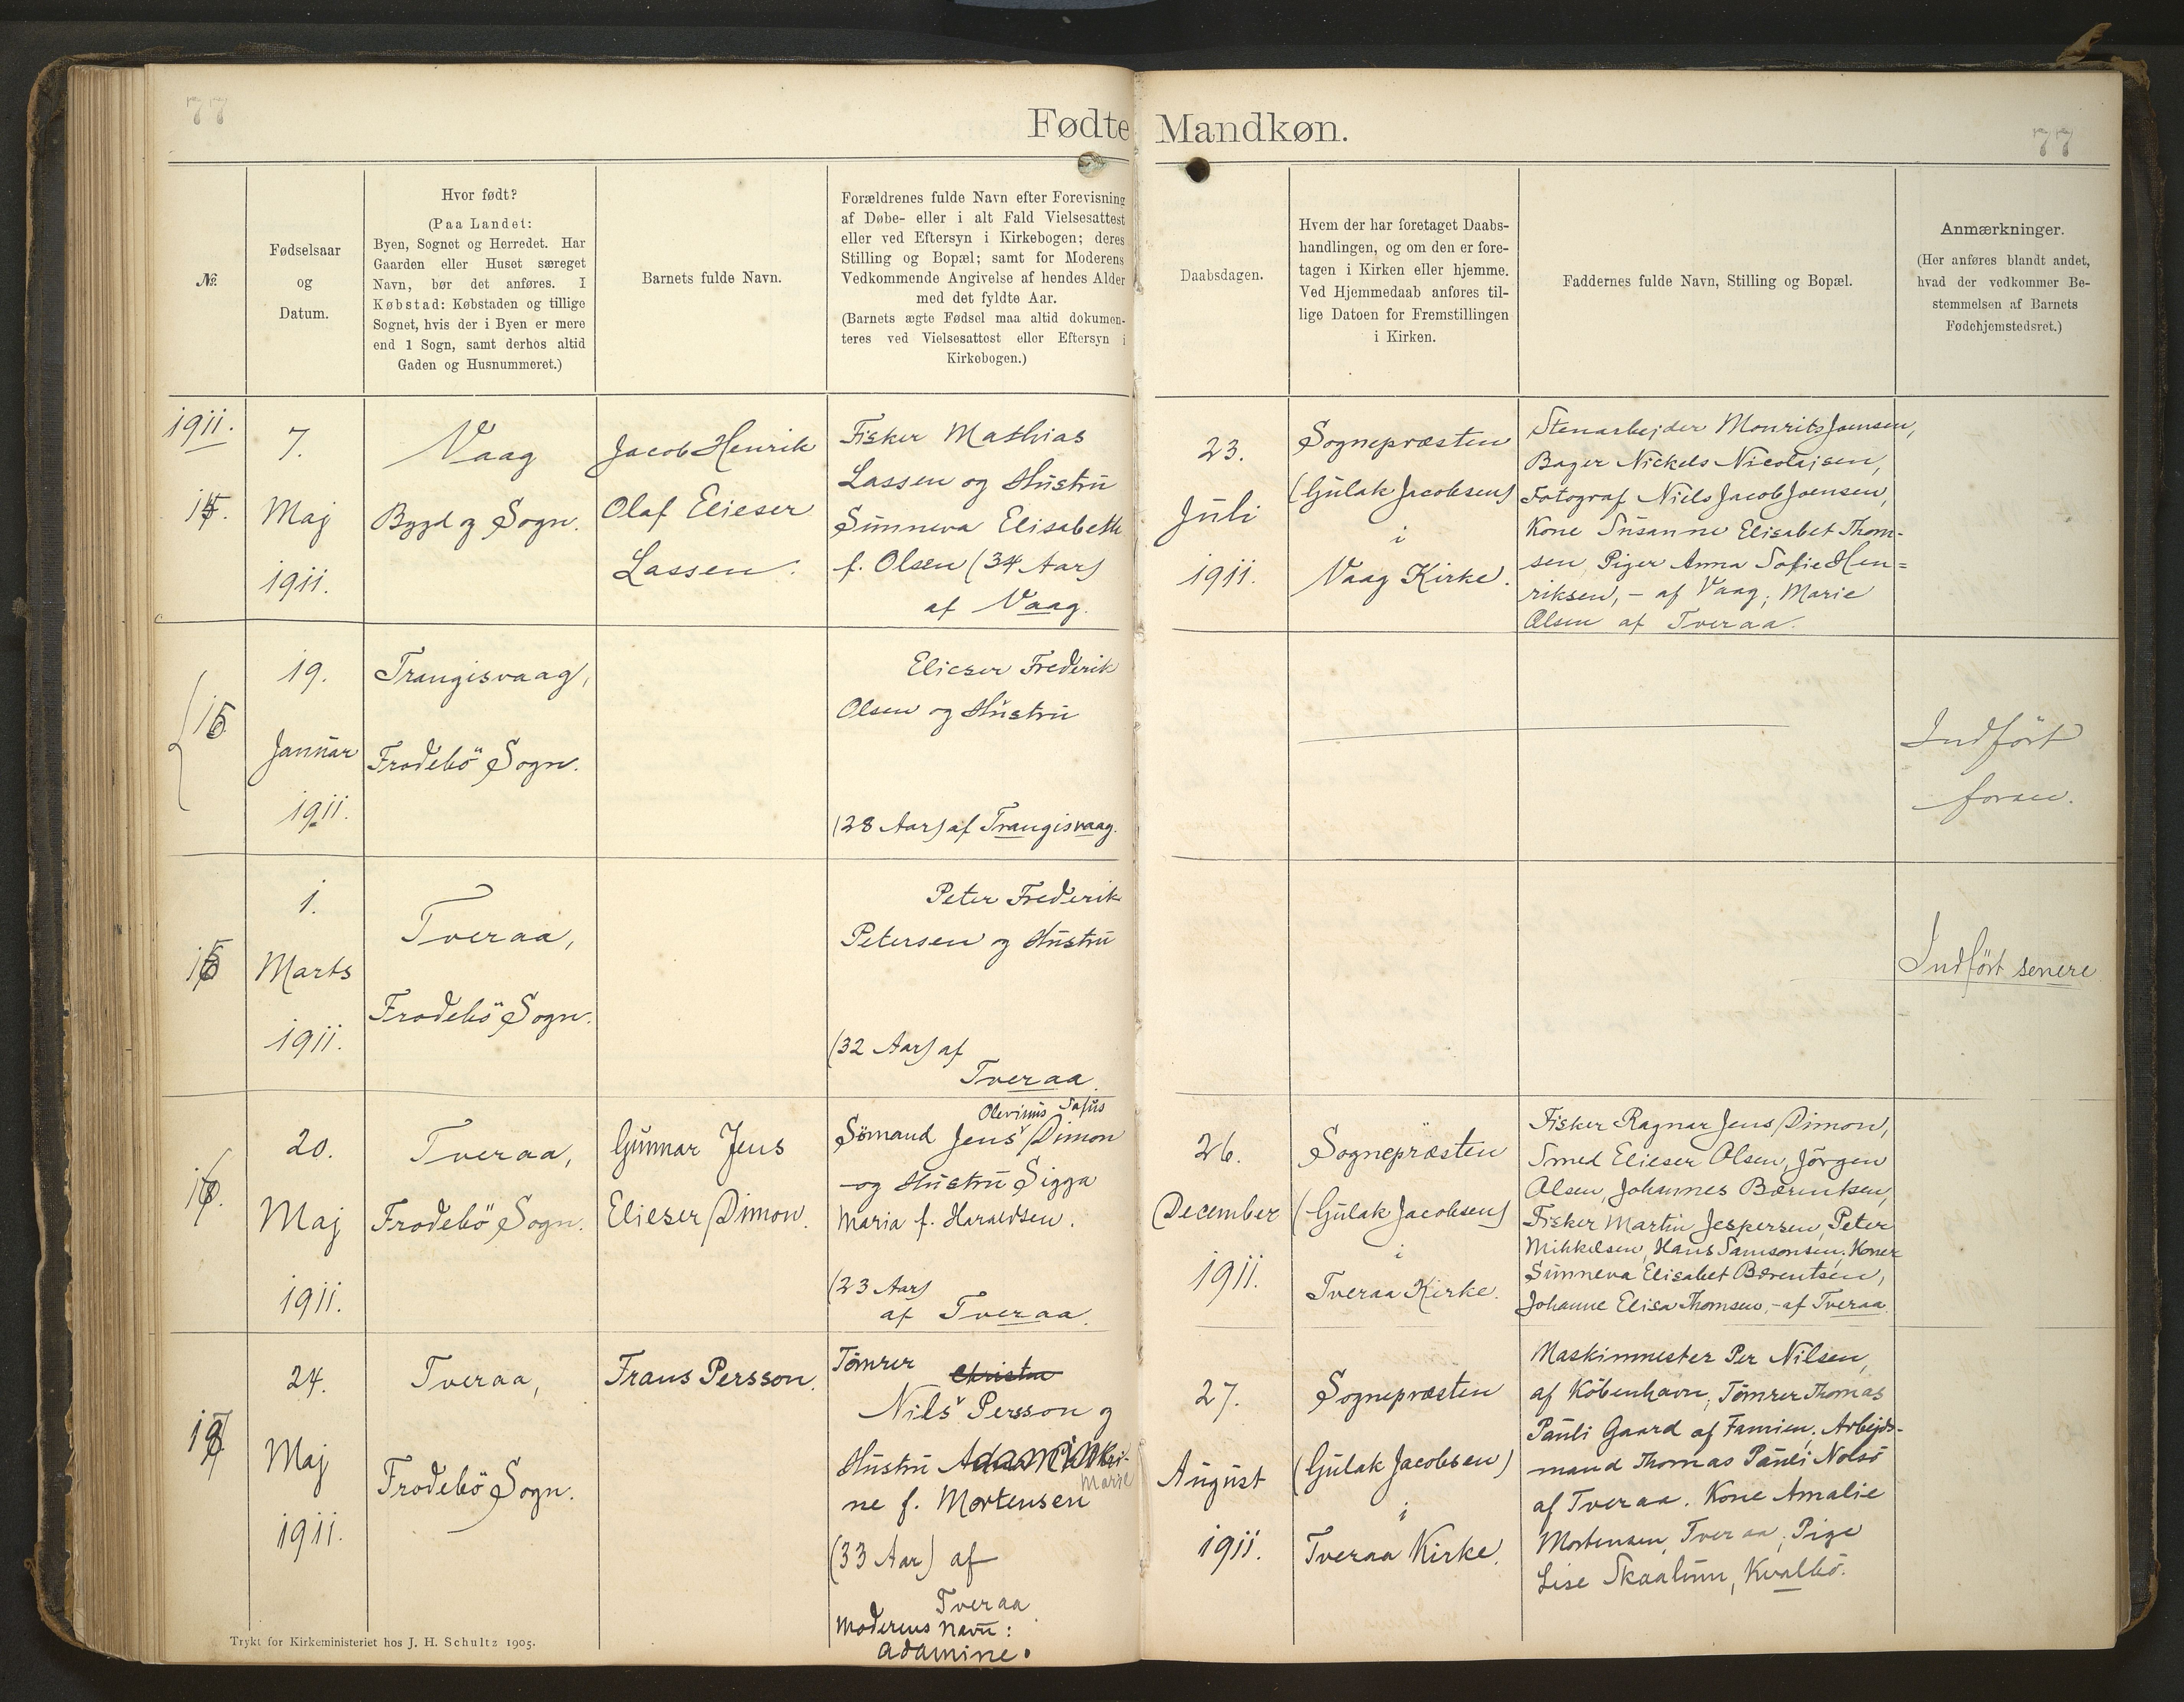 77
Fødte Mandkøn.
77
№.
Fødselsaar
og
Datum.
Hvor født?
(Paa Landet:
Byen, Sognet og Herredet. Har
Gaarden eller Huset særeget
Navn, bør det anføres. I
Købstad: Købstaden og tillige
Sognet, hvis der i Byen er mere
end 1 Sogn, samt derhos altid
Gaden og Husnummeret.)
Barnets fulde Navn.
Forældrenes fulde Navn efter Forevisning
af Døbe- eller i alt Fald Vielsesattest
eller ved Eftersyn i Kirkebogen; deres
Stilling og Bopæl; samt for Moderens
Vedkommende Angivelse af hendes Alder
med det fyldte Aar.
(Barnets ægte Fødsel maa altid dokumen-
teres ved Vielsesattest eller Eftersyn i
Kirkebogen.)
Daabsdagen.
Hvem der har foretaget Daabs-
handlingen, og om den er fore-
tagen i Kirken eller hjemme.
Ved Hjemmedaab anføres til-
lige Datoen for Fremstillingen
i Kirken.
Faddernes fulde Navn, Stilling og Bopæl.
Anmærkninger.
(Her anføres blandt andet,
hvad der vedkommer Be-
stemmelsen af Barnets
Fødehjemstedsret.)
1911.
7.
Maj
1911.
Vaag
Bygd og Sogn.
Jacob Henrik
Olaf Elieser
Lassen.
Fisker Mathias
Lassen og Hustru
Sunneva Elisabeth
f. Olsen (34 Aar)
af Vaag.
23.
Juli
1911.
Sognepræsten
(Gulak Jacobsen)
i
Vaag Kirke.
Stenarbejder Mourits Joensen,
Bager Nickels Nicolajsen,
Fotograf Niels Jacob Joensen,
Kone Susanne Elisabet Thom-
sen, Piger Anna Sofie Hen=
riksen, - af Vaag; Marie
Olsen af Tveraa.
19.
Januar
1911.
Trangisvaag,
Frodebö Sogn.
Elieser Frederik
Olsen og Hustru
(28 Aar) af Trangisvaag.
Indført
foran.
1.
Marts
1911.
Tveraa,
Frodebö Sogn.
Peter Frederik
Petersen og Hustru
(32 Aar) af
Tveraa.
Indført senere
20.
Maj
1911.
Tveraa,
Frodebö Sogn.
Gunnar Jens
Elieser Dimon.
Olevinus Safus
Sömand Jens Dimon
og Hustru Sigga
Maria f. Haraldsen.
(23 Aar)
af Tveraa.
26.
December
1911.
Sognepræsten
(Gulak Jacobsen)
i
Tveraa Kirke.
Fisker Ragnar Jens Dimon,
Smed Elieser Olsen, Jörgen
Olsen, Johannes Bærentsen,
Fisker Martin Jespersen, Peter
Mikkelsen, Hans Samsonsen, Koner
Sunneva Elisabet Bærentsen,
Johanne Elisa Thomsen, - af Tveraa.
24.
Maj
1911.
Tveraa,
Frodebö Sogn.
Frans Persson.
Tömrer
Nils Persson og
Hustru
Marie
ne f. Mortensen
(33 Aar) af
Tveraa.
Moderens Navn:
Adamine.
27.
August
1911.
Sognepræsten
(Gulak Jacobsen)
i
Tveraa Kirke.
Maskinmester Per Nilsen,
af Köbenhavn; Tömrer Thomas
Pauli Gaard af Famien, Arbejds-
mand Thomas Pauli Nolsö
af Tveraa. Kone Amalie
Mortensen, Tveraa, Pige
Lise Skaalum, Kvalbö.
Trykt for Kirkeministeriet hos J. H. Schultz 1905.